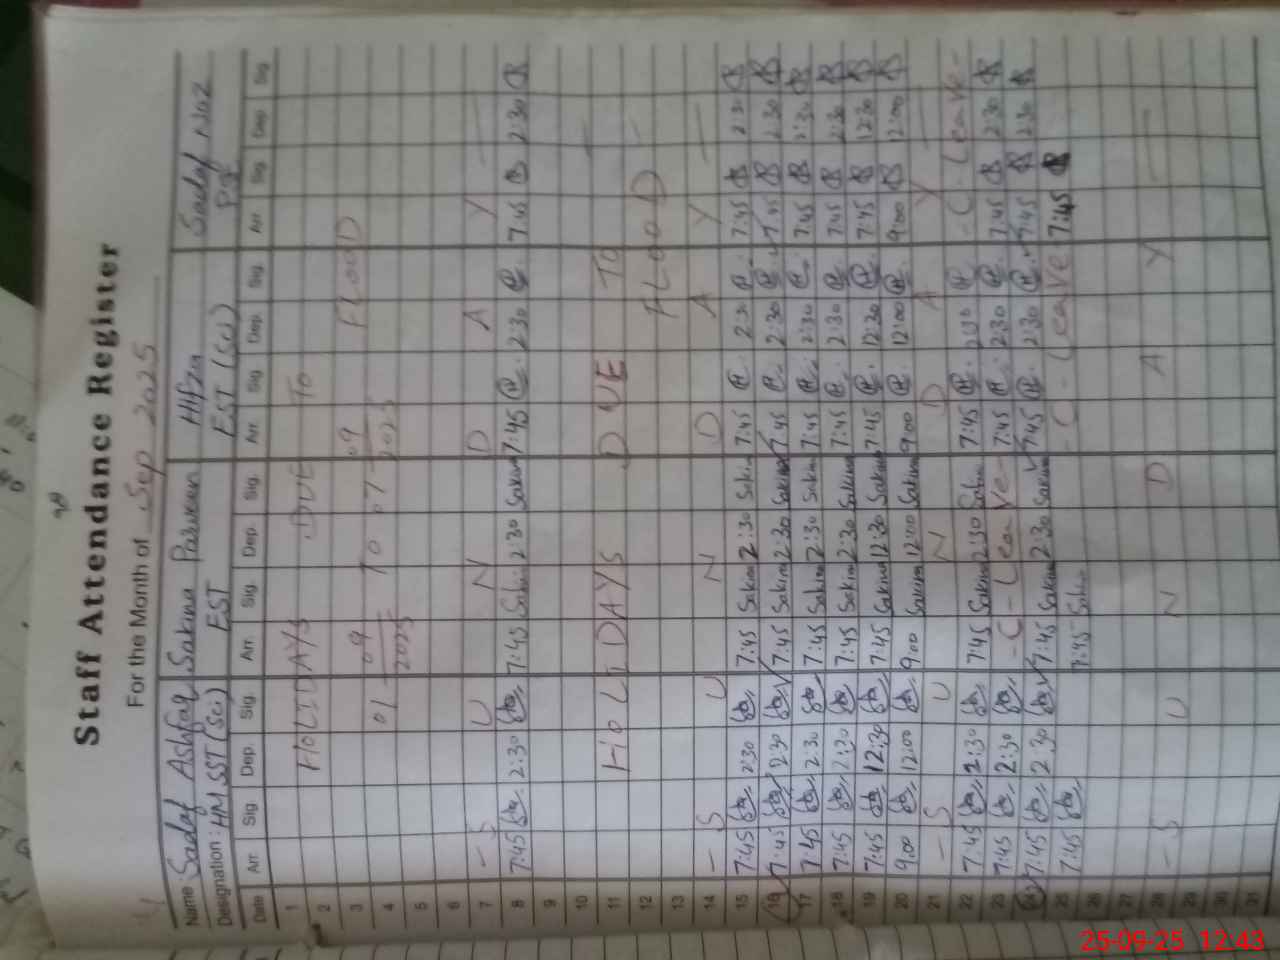 Staff Attendance Register
For the Month of Sep 2025
Name Sadaf Ashfaq Sakina Parveen Hifza Sadaf Niaz
Designation: HM, SST (Sci) EST EST (Sci)
Date Arr. Sig. Dep. Sig. Arr. Sig. Dep. Sig. Arr. Sig. Dep. Sig. Arr. Sig. Dep. Sig.
1 HOLIDAYS DUE TO
2
3 FLOOD
01 09 2025 TO 07 09 2025
4
5
6
7 - S U N D A Y -
8 7:45 2:30 7:45 Sakina 2:30 Sakina 7:45 2:30 7:45 2:30
9
10
11 HOLIDAYS DUE TO
12 FLOOD
13
14 - S U N D A Y -
15 7:45 2:30 7:45 Sakina 2:30 Sakina 7:45 2:30 7:45 2:30
16 7:45 2:30 7:45 Sakina 2:30 Sakina 7:45 2:30 7:45 2:30
17 7:45 2:30 7:45 Sakina 2:30 Sakina 7:45 2:30 7:45 2:30
18 7:45 2:30 7:45 Sakina 2:30 Sakina 7:45 2:30 7:45 2:30
19 7:45 12:30 7:45 Sakina 12:30 Sakina 7:45 12:30 7:45 12:30
20 9:00 12:00 9:00 Sakina 12:00 Sakina 9:00 12:00 9:00 12:00
21 - S U N D A Y -
22 7:45 2:30 7:45 Sakina 2:30 Sakina 7:45 2:30 - C - Leave -
23 7:45 2:30 - C - Leave - 7:45 2:30 7:45 2:30
24 7:45 2:30 7:45 Sakina 2:30 Sakina 7:45 2:30 7:45 2:30
25 7:45 7:45 Sakina - C - Leave 7:45
26
27
28 - S U N D A Y -
29
30
31
25-09-25 12:43